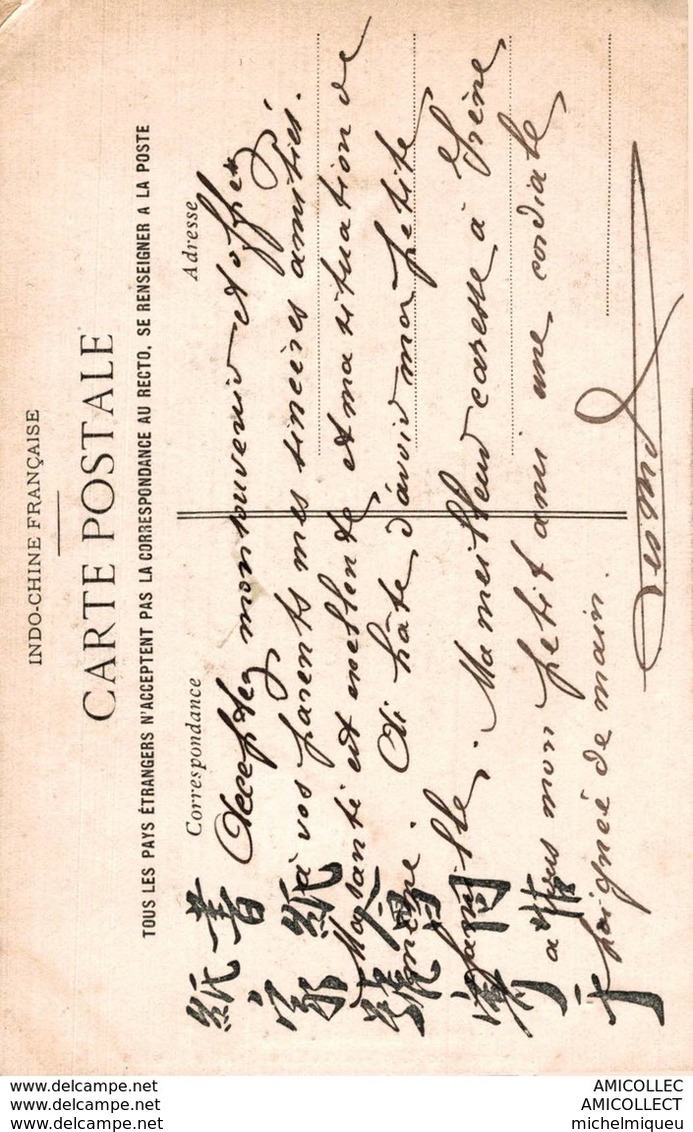 INDO-CHINE FRANÇAISE
CARTE POSTALE
TOUS LES PAYS ÉTRANGERS N'ACCEPTENT PAS LA CORRESPONDANCE AU RECTO. SE RENSEIGNER A LA POSTE
Correspondance
Adresse
Acceptez mon souvenir et offrez
à vos parents mes sincères amitiés.
Ma santé est excellente et ma situation de
même. Ai hâte d'avoir ma petite
famille. Ma meilleur caresse à Irène
a vous mon petit ami une cordiale
poignée de main.
紙 家 號
書 紙
www.delcampe.net
www.delcampe.net
www.delcampe.net
AMICOLLEC
AMICOLLECT
michelmiqueu